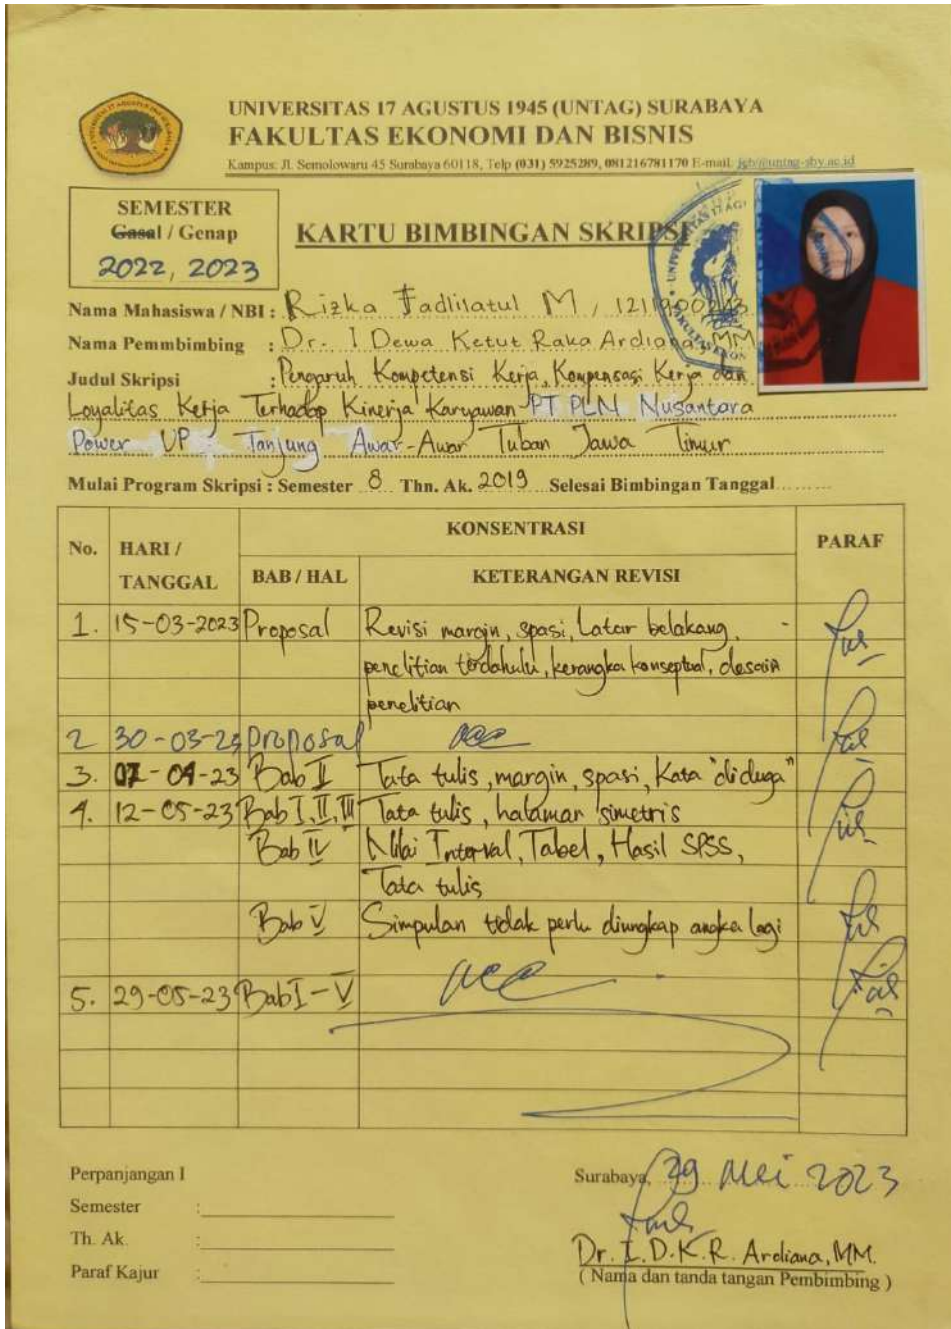 UNIVERSITAS 17 AGUSTUS 1945 (UNTAG) SURABAYA
FAKULTAS EKONOMI DAN BISNIS
Kampus: Jl. Semolowaru 45 Surabaya 60118, Telp (031) 5925289, 081216781170 E-mail: feb@untag-sby.ac.id
SEMESTER
Gasal / Genap
2022, 2023
KARTU BIMBINGAN SKRIPSI
Nama Mahasiswa / NBI : Rizka Fadlilatul M, 1211900243
Nama Pemmbimbing : Dr. I Dewa Ketut Raka Ardiana, MM
Judul Skripsi : Pengaruh Kompetensi Kerja, Kompensasi Kerja dan
Loyalitas Kerja Terhadap Kinerja Karyawan PT PLN Nusantara
Power UP Tanjung Awar-Awar Tuban Jawa Timur
Mulai Program Skripsi : Semester 8 Thn. Ak. 2019 Selesai Bimbingan Tanggal
No. HARI / TANGGAL KONSENTRASI PARAF
BAB / HAL KETERANGAN REVISI
1. 15-03-2023 Proposal Revisi margin, spasi, Latar belakang,
penelitian terdahulu, kerangka konseptual, desain
penelitian
2 30-03-23 Proposal acc
3. 07-04-23 Bab II Tata tulis, margin, spasi, Kata "diduga"
4. 12-05-23 Bab I, II, III Tata tulis, halaman simetris
Bab IV Nilai Interval, Tabel, Hasil SPSS,
Tata tulis
Bab V Simpulan tidak perlu diungkap angka lagi
5. 29-05-23 Bab I - V acc
Perpanjangan I
Semester :
Th. Ak. :
Paraf Kajur :
Surabaya, 29 Mei 2023
Dr. I.D.K.R. Ardiana, MM.
( Nama dan tanda tangan Pembimbing )